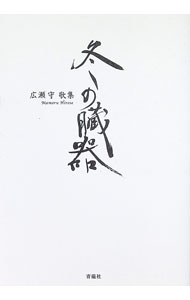 冬の臓器
広瀬守 歌集
Mamoru Hirose
青磁社